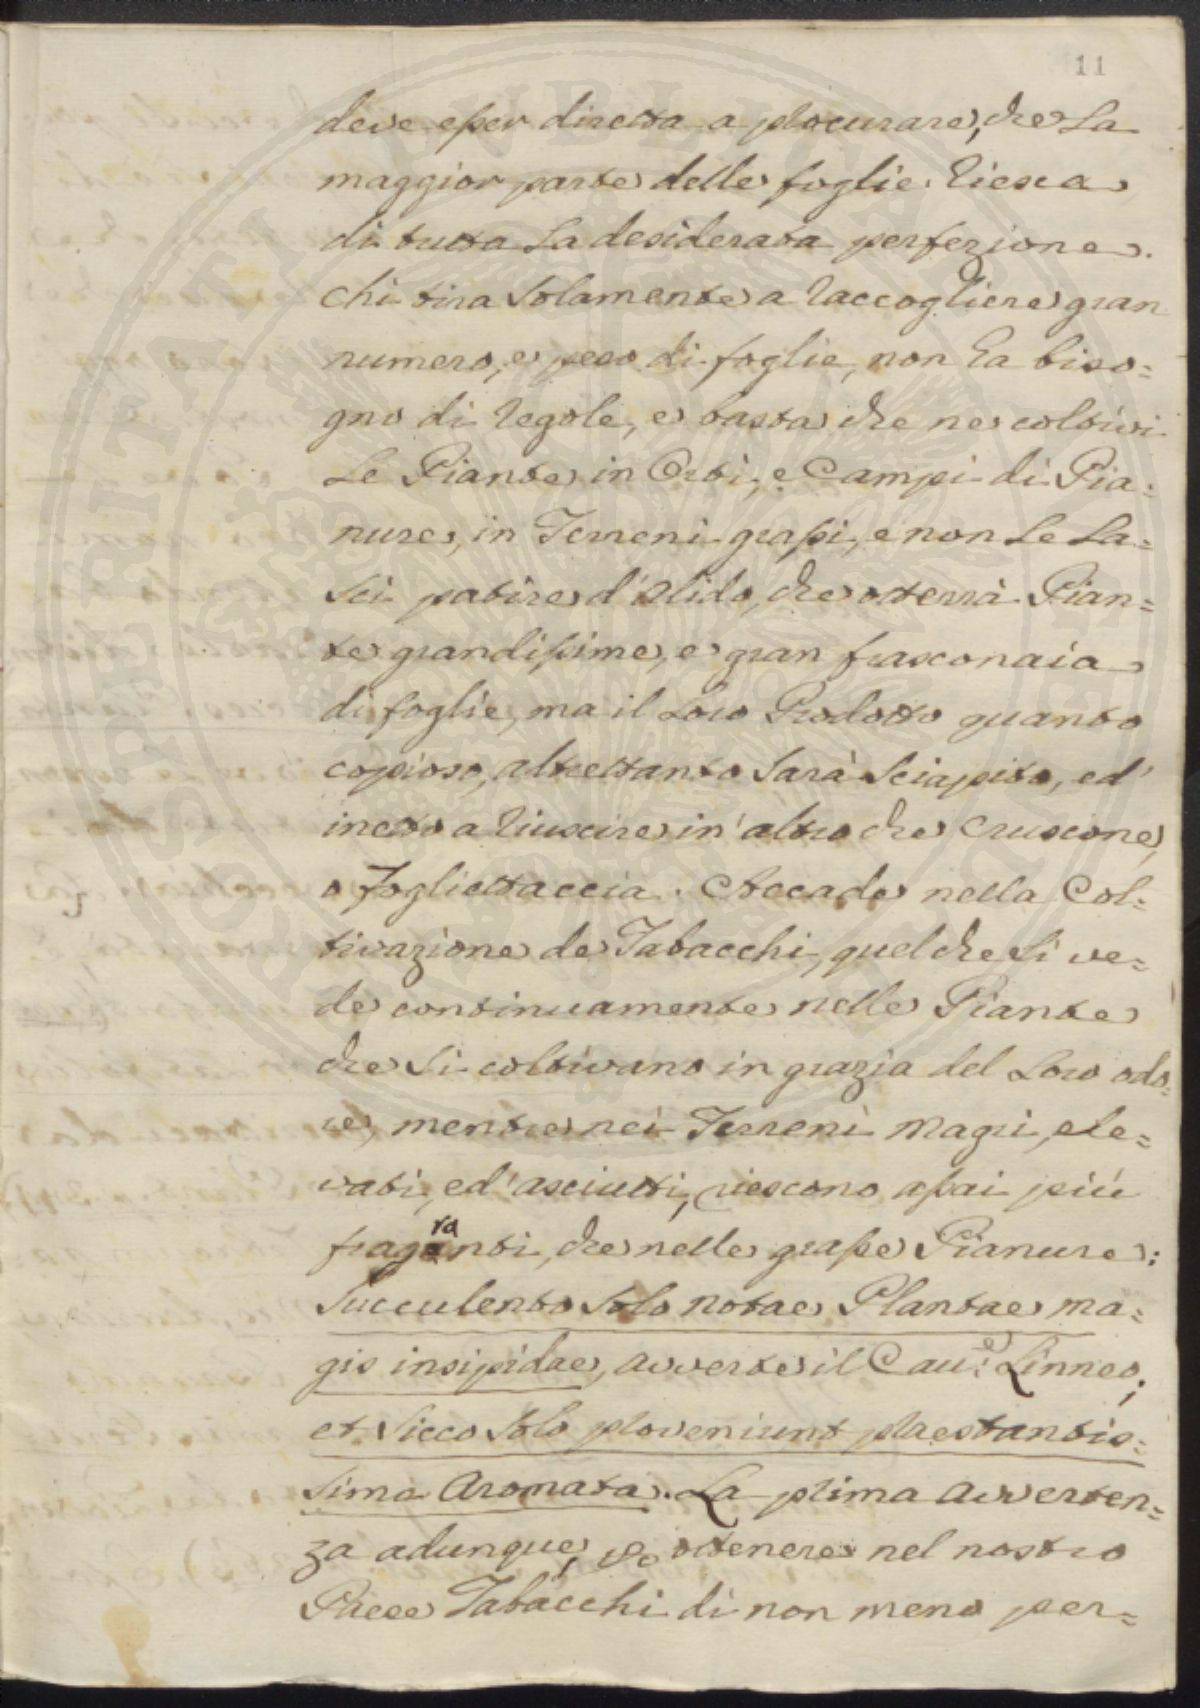 11
deve esser diretta a procurare, che La
maggior parte delle foglie riesca
di tutta La desiderata perfezione.
Chi tira Solamente a raccogliere gran
numero, e peso di foglie, non ha biso=
gno di regole, e basta che ne coltivi
Le Piante in Orti, e Campi di Pia=
nure, in Terreni grassi, e non Le La=
sci patire d'Alido, che otterrà Pian=
te grandissime, e gran frasconaia
di foglie, ma il Loro Prodotto quanto
copioso, altrettanto Sarà Sciapito, ed'
inetto a riuscire in'altro che Cruscone,
o Fogliettaccia. Accade nella Col=
tivazione de Tabacchi, quel che Si ve=
de continuamente nelle Piante
che Si coltivano in grazia del Loro odo=
re, mentre nei Terreni Magri, ele=
vati, ed'asciutti, riescono assai più
ra
fraganti, che nelle grasse Pianure:
Succulento Solo notae Plantae ma=
gis insipidae, avverte il Cav:e Linneo;
et Sicco Solo proveniunt praestantis=
sima Aromata. La prima Avverten=
za adunque, p ottenere nel nostro
Paese Tabacchi di non meno per=